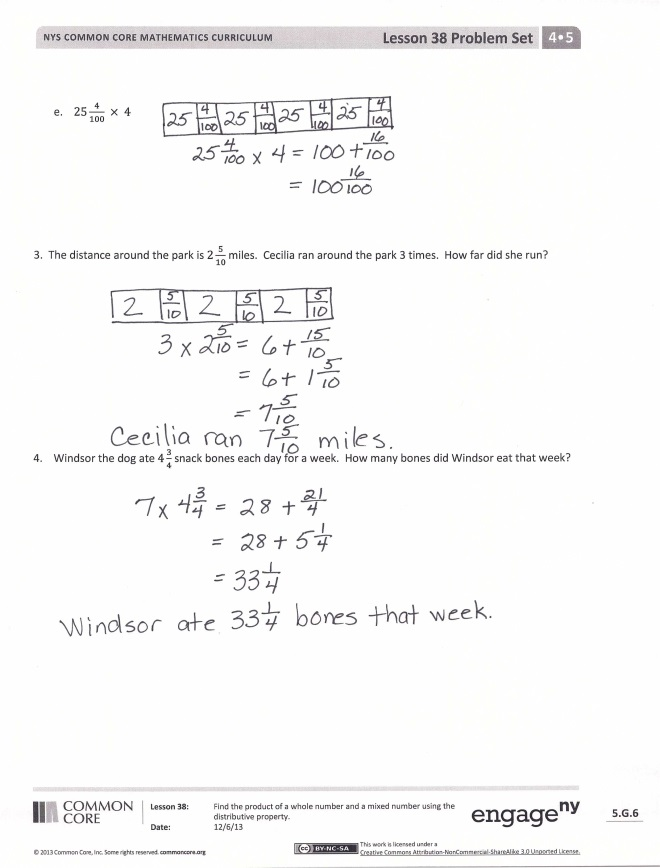 NYS COMMON CORE MATHEMATICS CURRICULUM Lesson 38 Problem Set 4•5
e. 25 4/100 × 4
25 4/100 25 4/100 25 4/100 25 4/100
25 4/100 x 4 = 100 + 16/100
= 100 16/100
3. The distance around the park is 2 5/10 miles. Cecilia ran around the park 3 times. How far did she run?
2 5/10 2 5/10 2 5/10
3 x 2 5/10 = 6 + 15/10
= 6 + 1 5/10
= 7 5/10
Cecilia ran 7 5/10 miles.
4. Windsor the dog ate 4 3/4 snack bones each day for a week. How many bones did Windsor eat that week?
7 x 4 3/4 = 28 + 21/4
= 28 + 5 1/4
= 33 1/4
Windsor ate 33 1/4 bones that week.
COMMON CORE
Lesson 38: Find the product of a whole number and a mixed number using the distributive property.
Date: 12/6/13
engage ny
5.G.6
© 2013 Common Core, Inc. Some rights reserved. commoncore.org
(cc) BY-NC-SA
This work is licensed under a
Creative Commons Attribution-NonCommercial-ShareAlike 3.0 Unported License.